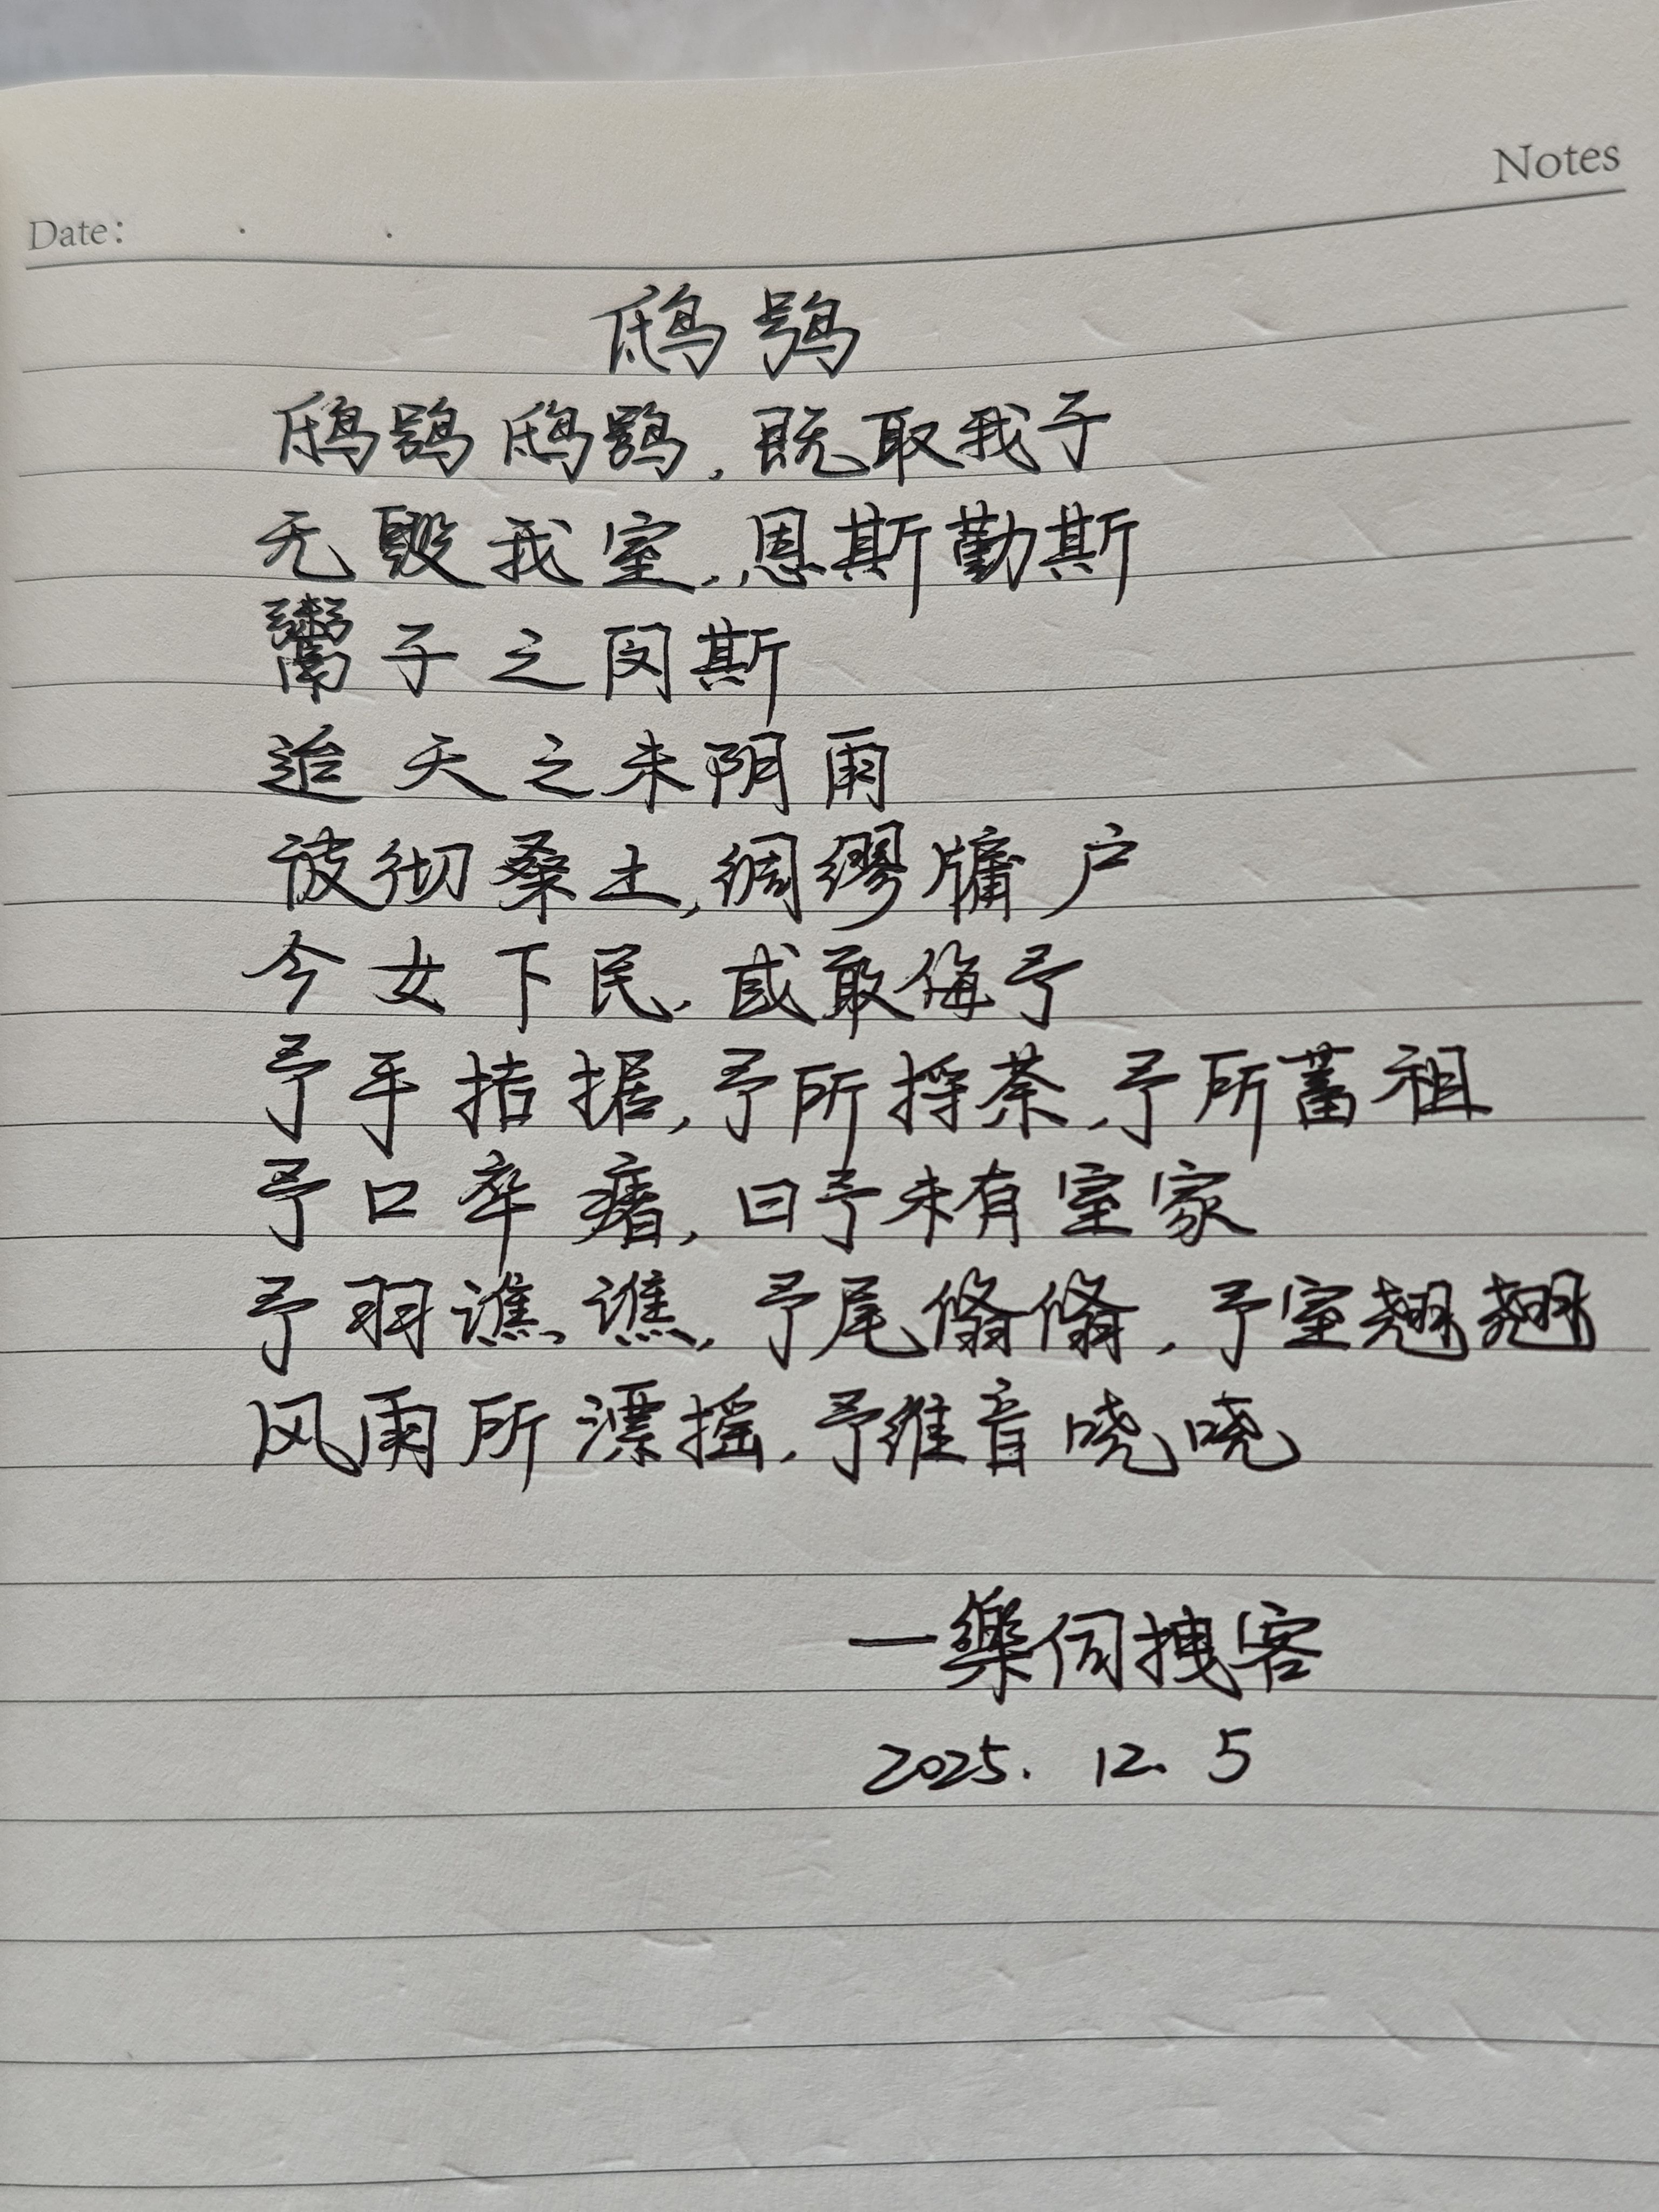 Notes
Date:
鸱鸮
鸱鸮鸱鸮,既取我子
无毁我室,恩斯勤斯
鬻子之闵斯
迨天之未阴雨
彼彻桑土,绸缪牖户
今女下民,或敢侮予
予手拮据,予所捋荼,予所蓄租
予口卒瘏,曰予未有室家
予羽谯谯,予尾翛翛,予室翘翘
风雨所漂摇,予维音哓哓
一樂伺拽客
2025.12.5